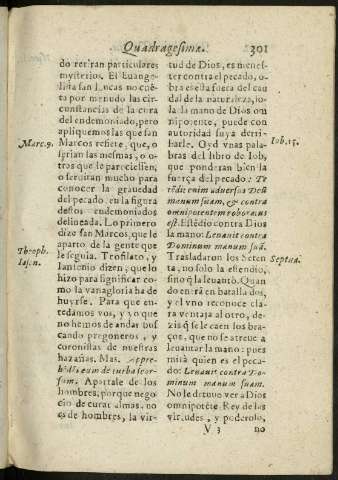 Quadragesimæ.
301
do rerlran particulares
mysterios. El Euange-
lista san Lucas no cuẽ-
ta por menudo las cir-
cunstancias de la cura
del endemoniado, pero
apliquemos las que san
Marcos refiere, que, o
serian las mesmas, o o-
tras que se pareciessen,
o seruiran mucho para
conocer la grauedad
del pecado en la figura
destos endemoniados
delineada. Lo primero
dize san Marcos, que le
aparto de la gente que
le seguia. Teofilato, y
Iansenio dizen, que lo
hizo para significar co-
mo la vanagloria ha de
huyrse. Para que en-
tedamos vos, y yo que
no hemos de andar bus
cando pregoneros, y
coronistas de nuestras
hazañas. Mas. Appre-
hẽdẽs eum de turba seor-
sum. Apartale de los
hombres, porque nego
cio de curar almas, no
es de hombres, la vir-
Marc. 9.
Theoph.
Iasen.
tud de Dios, es menes-
ter contra el pecado, o-
bra es esta fuera del cau
dal de la naturaleza, so-
la la mano de Dios om
nipotente, puede con
autoridad suya derri-
barle. Oyd vnas pala-
bras del libro de Iob,
que ponderan bien la
fuerça del pecado: Te
tẽdit enim aduersus Deũ
manum suam, & contra
omnipotentem roboratus
est. Estẽdio contra Dios
la mano: Leuauit contra
Dominum manum suã.
Trasladaron los Seten
ta, no solo la estendio,
sino q̃ la leuantò. Quan
do entrã en batalla dos,
y el vno reconoce cla-
ra ventaja al otro, de-
zis q̃ se le caen los bra-
ços, que no se atreue a
leuantar la mano: pues
mirà quien es el peca-
do: Leuauit contra Do-
minum manum suam.
No le detuuo ver a Dios
omnipotẽte, Rey de las
virtudes, y poderoso,
Iob. 15.
Septua.
V 3
no